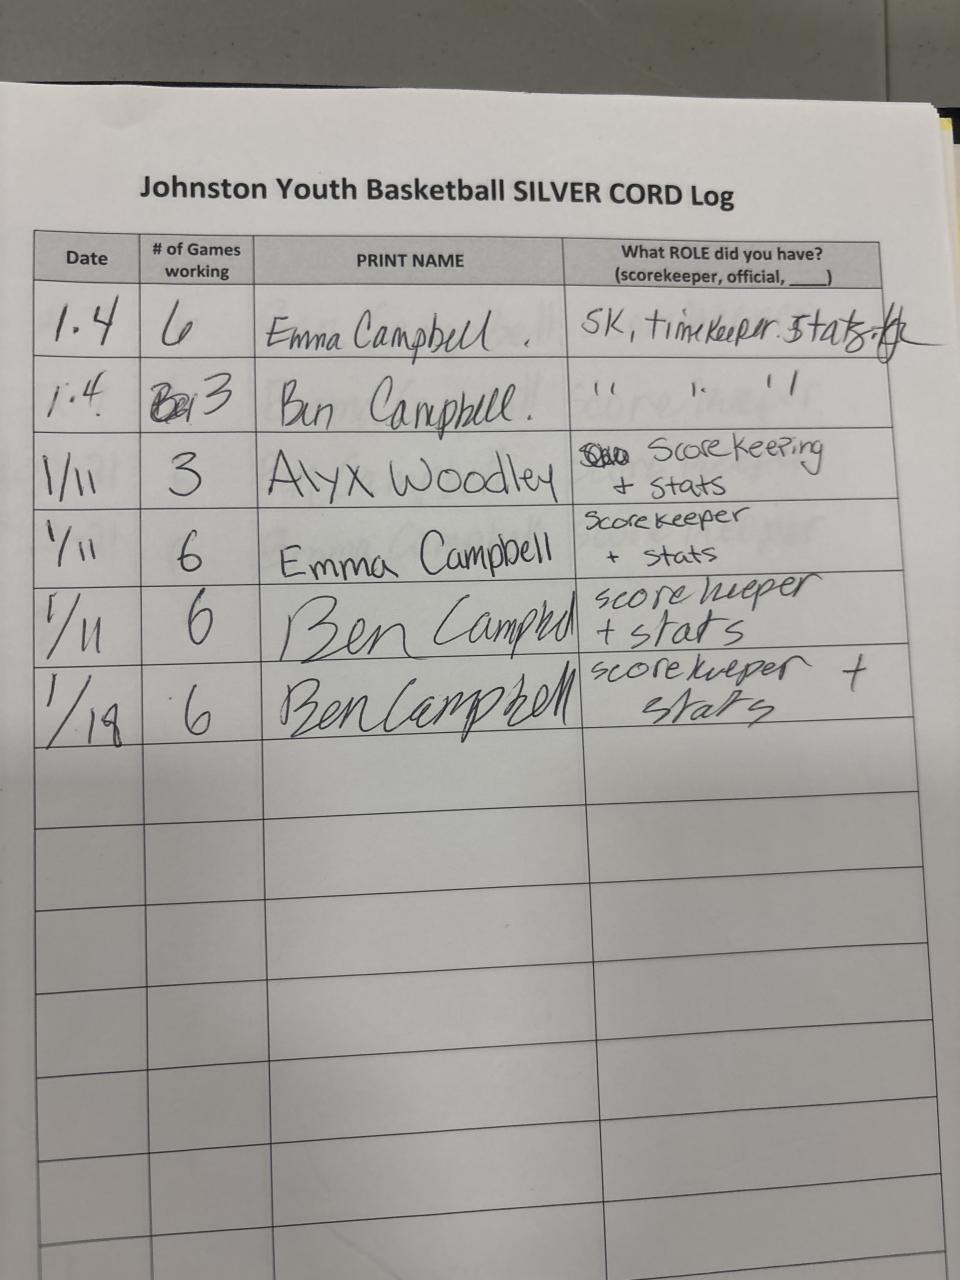 Johnston Youth Basketball SILVER CORD Log
Date
# of Games
working
PRINT NAME
What ROLE did you have?
(scorekeeper, official, ____)
1.4 6 Emma Campbell. SK, timekeeper. Stats.
1.4 3 Ben Campbell. " " "
1/11 3 Alyx Woodley Scorekeeping
+ stats
1/11 6 Emma Campbell Scorekeeper
+ stats
1/11 6 Ben Campbell scorekeeper
+ stats
1/18 6 Ben Campbell scorekeeper +
stats